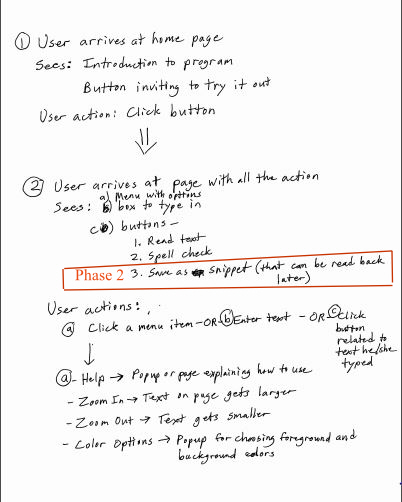 ① User arrives at home page
Sees: Introduction to program
Button inviting to try it out
User action: Click button
② User arrives at page with all the action
a) Menu with options
Sees: b) box to type in
c) buttons -
1. Read text
2. Spell check
Phase 2 3. Save as snippet (that can be read back
later)
User actions:
ⓐ Click a menu item - OR - ⓑ Enter text - OR - ⓒ Click
button
related to
text he/she
typed
ⓐ - Help → Popup or page explaining how to use
- Zoom In → Text on page gets larger
- Zoom Out → Text gets smaller
- Color Options → Popup for choosing foreground and
background colors